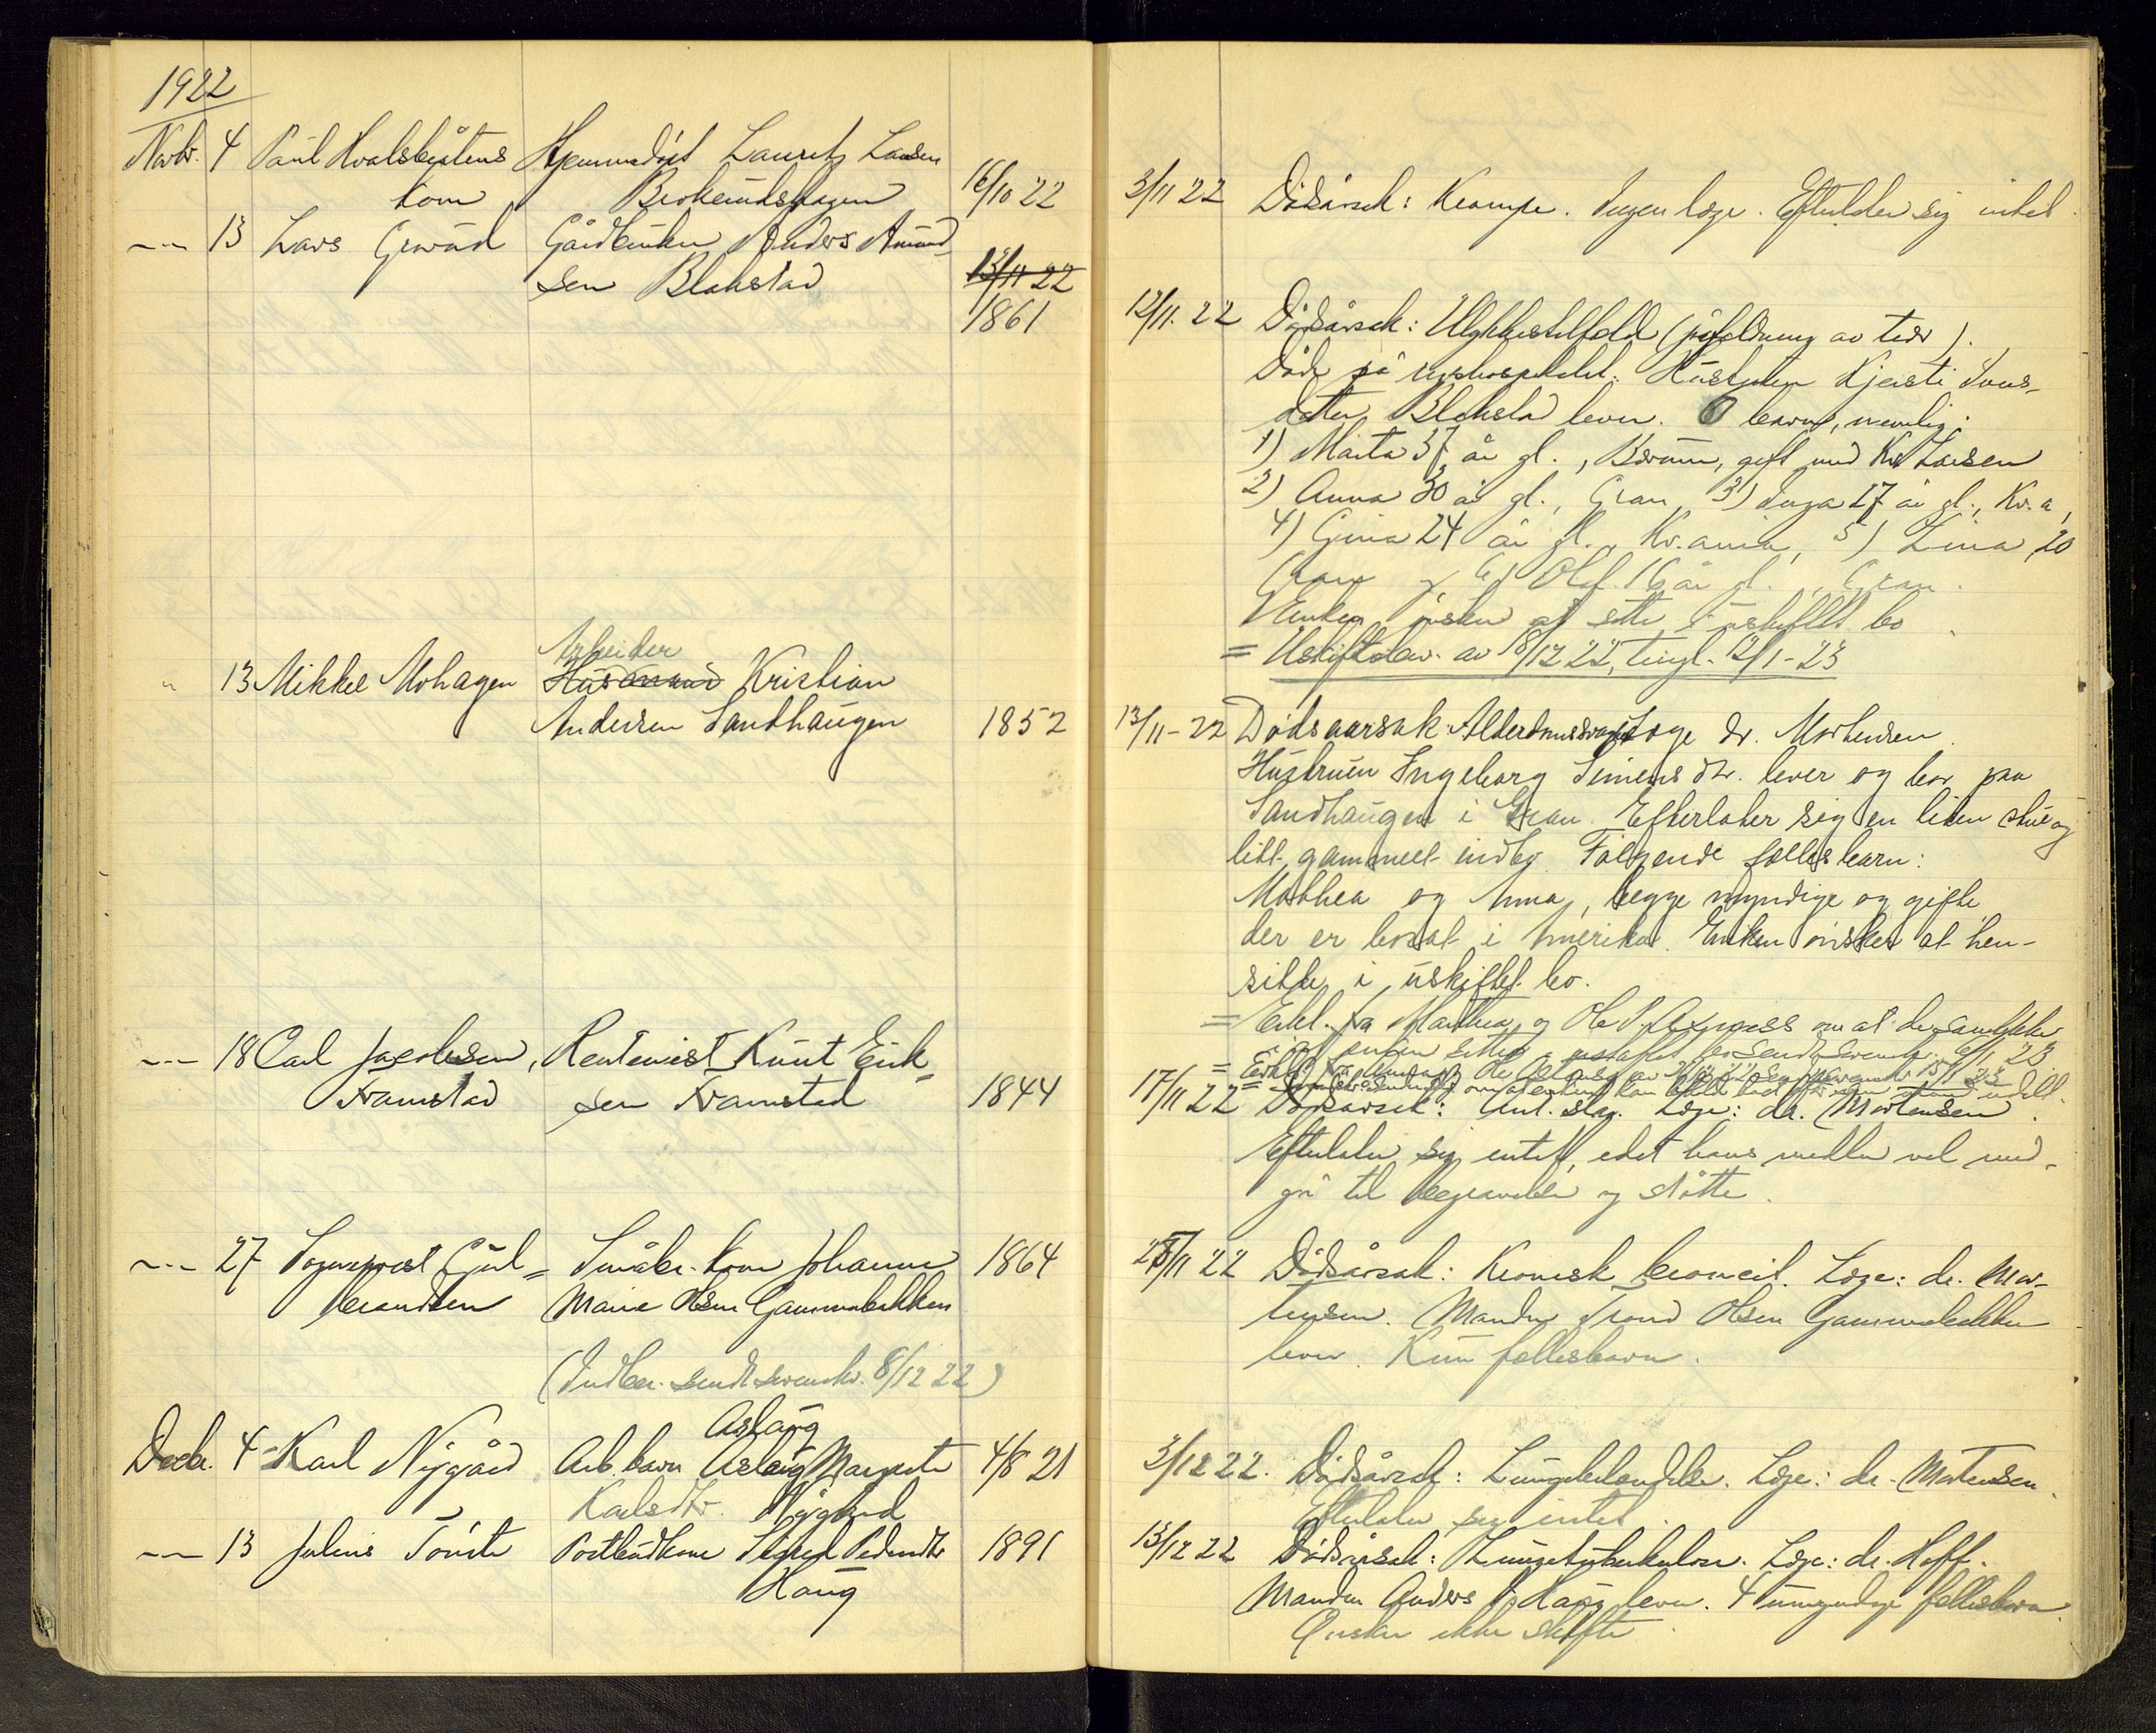 1922
Novbr. 4 Paul Hvalsbråtens Hjemmedøpt Laurits Larsen
kone 16/10 22
3/11 22 Dødsårsak: Krampe. Ingen læge. Efterlater sig intet.
-"- 13 Lars Grinåd Gårdbruker Anders Amund-
sen Blakstad 13/11 22
1861
12/11.22 Dødsårsak: Ulykkestilfeld (påfaldning av tødr).
Døde på rigshospitalet. Hustruen Kjersti Jons-
datter Blakstad lever. 6 barn, nemlig:
1) Marta 37 år gl., Bærum, gift med Kr. Larsen
2) Anna 30 år gl., Gran, 3) Inga 27 år gl., Kr.a,
4) Gina 24 år gl., Kr.ania, 5) Lina 20
Gran og 6) Olaf 16 år gl., Gran.
Enken ønsker at sitte i uskiftet bo
= Uskiftebev. av 18/12 22, tingl. 12/1-23
" 13 Mikkel Mohagen Arbeider
Husmand Kristian
Andersen Sandhaugen 1852
13/11-22 Dødsaarsak: Alderdomssvaghet Læge dr. Mortensen.
Hustruen Ingeborg Simensdtr. lever og bor paa
Sandhaugen i Gran. Efterlater sig en liten stue og
litt gammelt indbo. Følgende fællesbarn:
Mathea og Anna, begge myndige og gifte
der er bosat i Amerika. Enken ønsker at hen-
sitte i uskiftet bo.
= Erkl. fra Mathea og Ole om at de samtykker
i at enken sitter i uskiftet bo sendt sorenskr. 6/1 23
= Erkl. fra Anna og Ole sorenskr. 15/1 23
-"- 18 Carl Jacobsen, Rentenist Knut Erik-
Framstad sen Framstad 1844
17/11 22 Dødsårsak: Ant. slag. Læge: dr. Mortensen.
Efterlater sig intet, idet hans midler vel med-
gå til begravelse og støtte.
-"- 27 Sogneprest Gul- Småbr. kone Johanne 1864
brandsen Marie Olsen Gammebakken
(Indber. sendt sorenskr. 8/12 22)
25/11 22 Dødsårsak: Kronisk broncit. Læge: dr. Mor-
tensen. Manden Trond Olsen Gammebakken
lever. Kun fællesbarn.
Decbr. 4 Karl Nygård Aslaug
Arb. barn Aslaug Margrete 4/8 21
Karlsdtr. Nygård
3/12 22. Dødsårsak: Lungebetændelse. Læge: dr. Mortensen.
Efterlater sig intet.
-"- 13 Julius Tønte Postbudkone Sigrid Pedersdtr 1891
Haug
13/12 22 Dødsårsak: Lungetuberkulose. Læge: dr. Hoff.
Manden Anders P. Haug lever. 4 umyndige fællesbarn.
Ønsker ikke skifte.